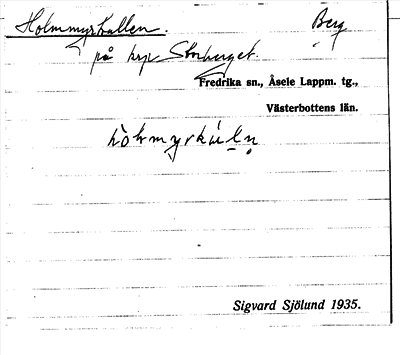 Holmmyrkullen. Berg
på krp Storberget
Fredrika sn., Åsele Lappm. tg.,
Västerbottens län.
hòḷmyrkùl̠ṇ
Sigvard Sjölund 1935.